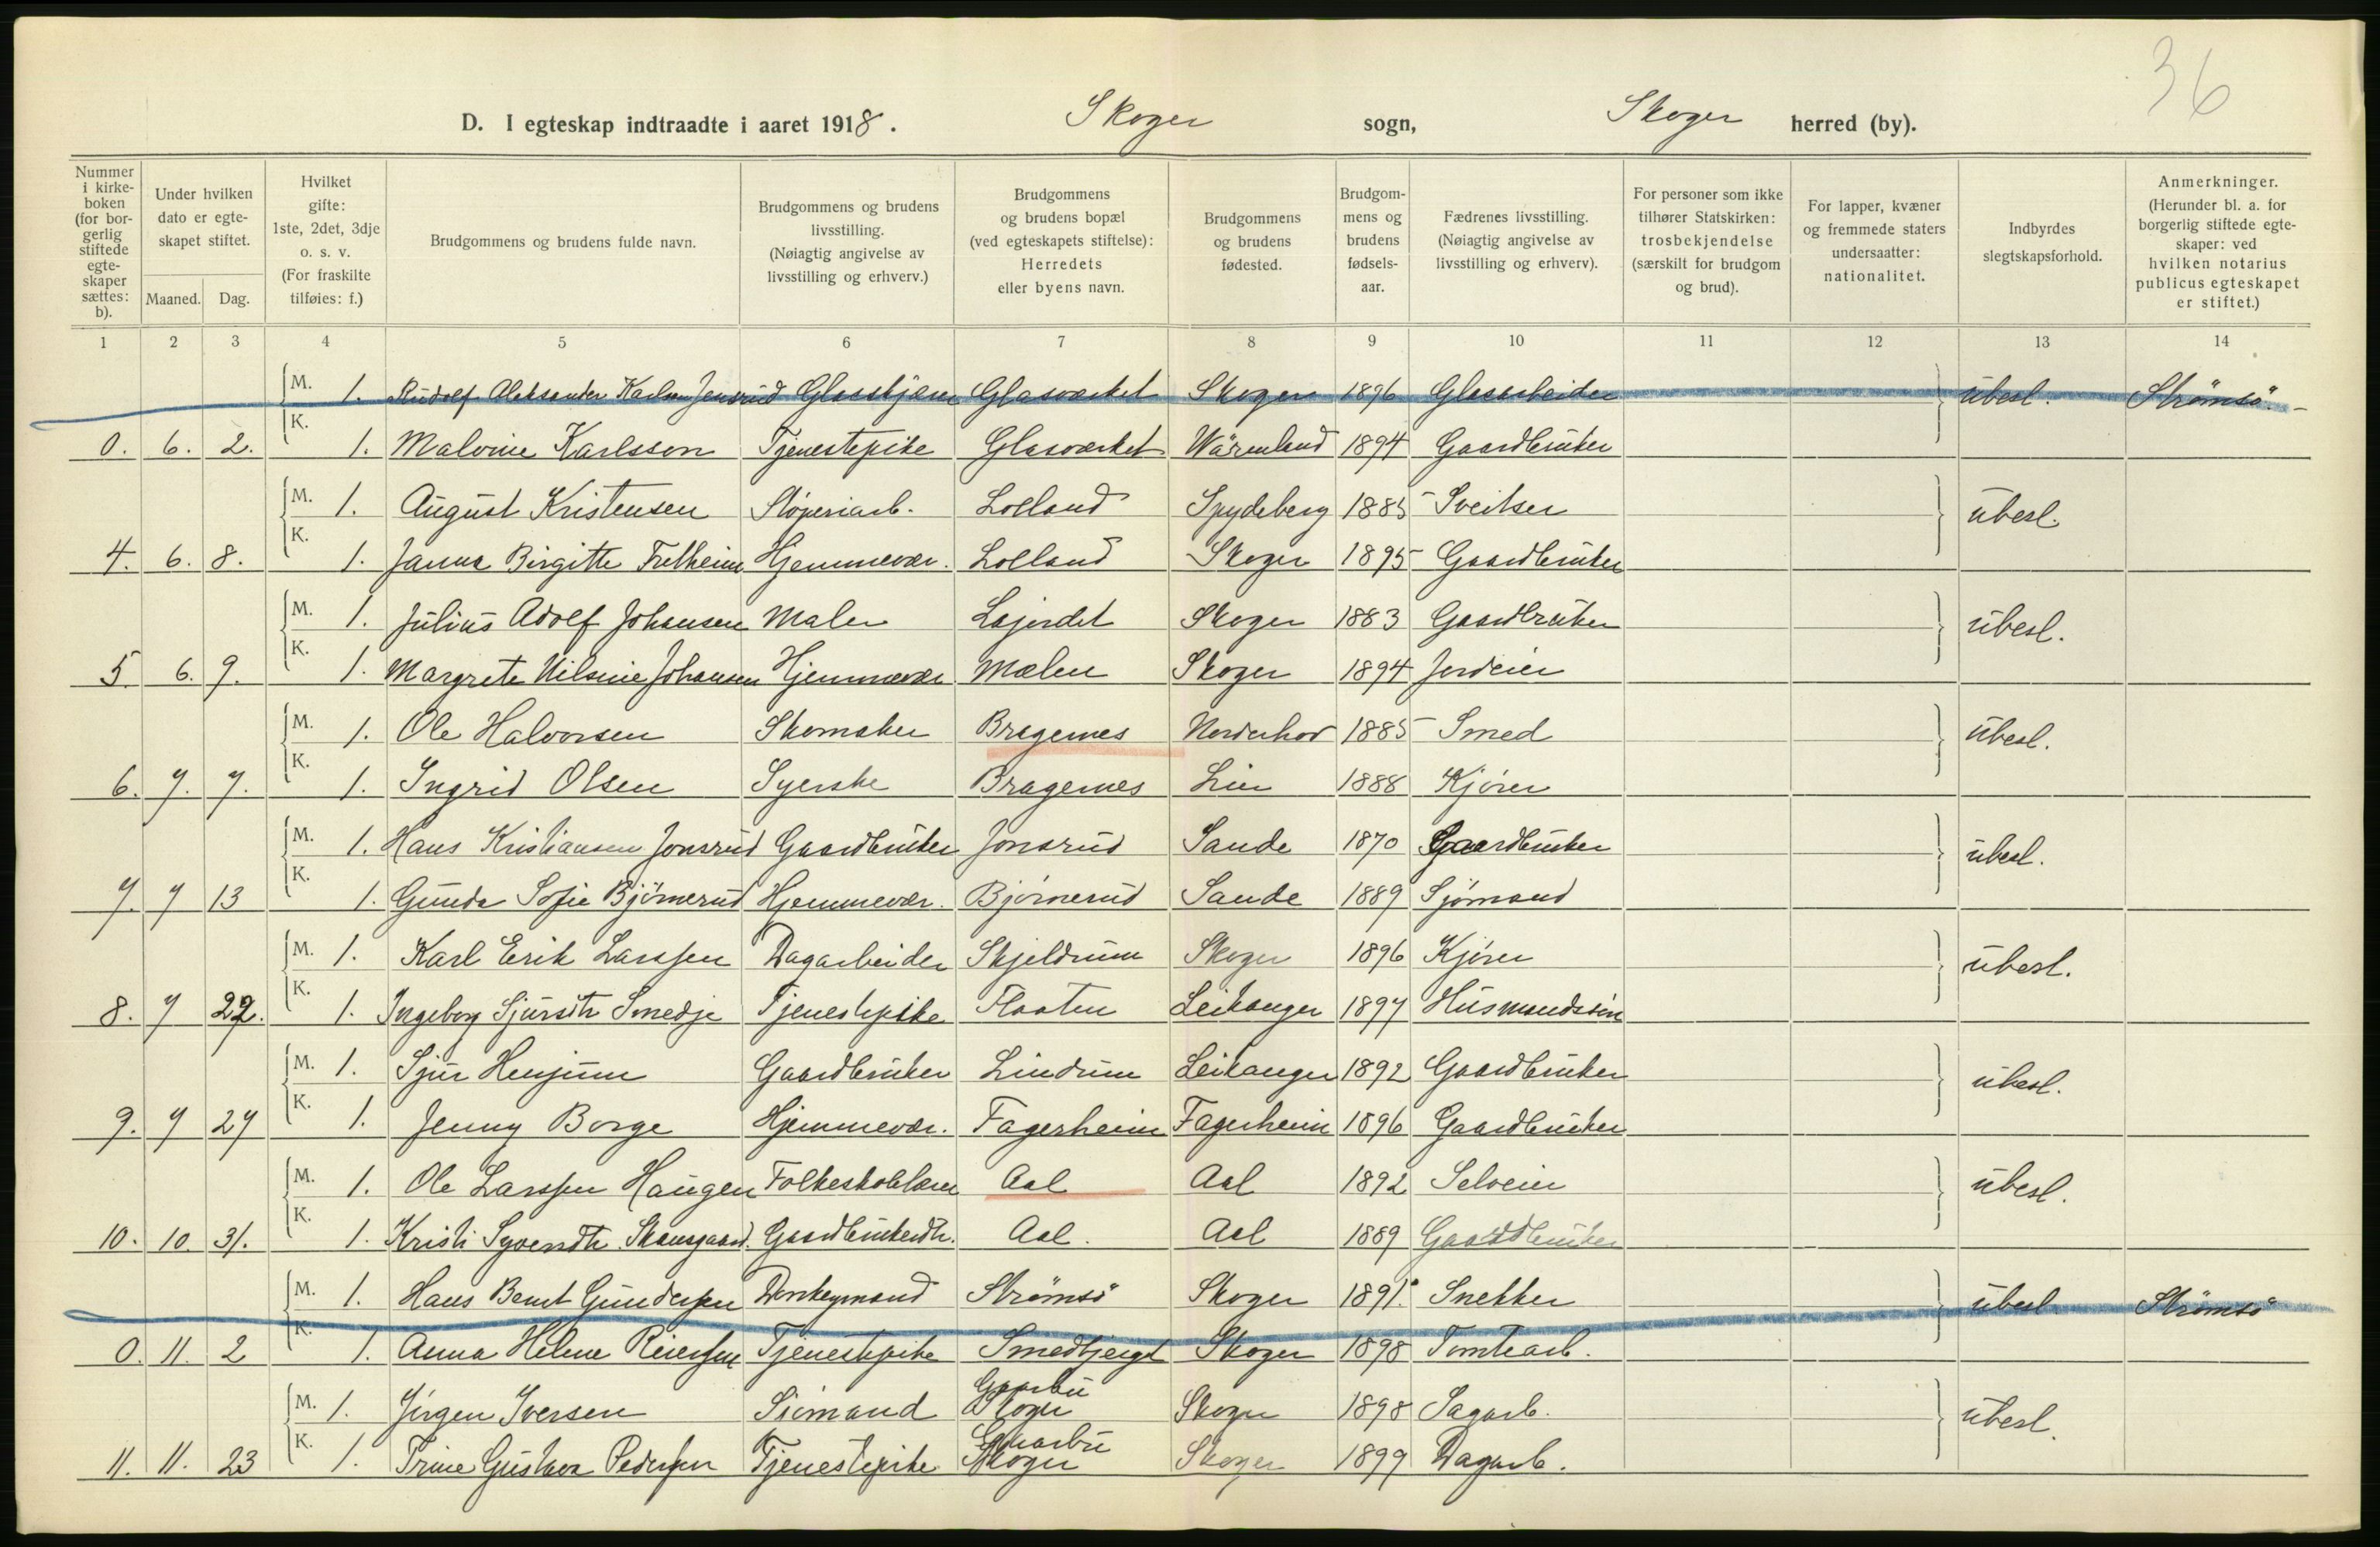 36
D. I egteskap indtraadte i aaret 1918. Skoger sogn, Skoger herred (by).
Nummer i kirke-boken (for bor-gerlig stiftede egte-skaper sættes: b).
Under hvilken dato er egte-skapet stiftet.
Maaned. Dag.
Hvilket gifte: 1ste, 2det, 3dje o. s. v. (For fraskilte tilføies: f.)
Brudgommens og brudens fulde navn.
Brudgommens og brudens livsstilling. (Nøiagtig angivelse av livsstilling og erhverv.)
Brudgommens og brudens bopæl (ved egteskapets stiftelse): Herredets eller byens navn.
Brudgommens og brudens fødested.
Brudgom-mens og brudens fødsels-aar.
Fædrenes livsstilling. (Nøiagtig angivelse av livsstilling og erhverv).
For personer som ikke tilhører Statskirken: trosbekjendelse (særskilt for brudgom og brud).
For lapper, kvæner og fremmede staters undersaatter: nationalitet.
Indbyrdes slegtskapsforhold.
Anmerkninger. (Herunder bl. a. for borgerlig stiftede egte-skaper: ved hvilken notarius publicus egteskapet er stiftet.)
1 2 3 4 5 6 7 8 9 10 11 12 13 14
M. 1. Rudolf Aleksander Karlsen Jensrud Glasskjærer Glasværket Skoger 1896 Glasarbeider ubesl. Strömsö.
0. 6. 2. K. 1. Malvine Karlsson Tjenestepike Glasværket Wärmland 1894 Gaardbruker
M. 1. August Kristensen Støperiarb. Lolland Spydeberg 1885 Sveitser ubesl.
4. 6. 8. K. 1. Janna Birgitte Fretheim Hjemmevær. Lolland Skoger 1895 Gaardbruker
M. 1. Julius Adolf Johansen Maler Løjerdet Skoger 1883 Gaardbruker ubesl.
5. 6. 9. K. 1. Margrete Nilsine Johansen Hjemmevær Mælen Skoger 1894 Jordeier
M. 1. Ole Halvorsen Skomaker Bragernes Norderhov 1885 Smed ubesl.
6. 7. 7. K. 1. Ingrid Olsen Syerske Bragernes Lier 1888 Kjörer
M. 1. Hans Kristiansen Jonsrud Gaardbruker Jonsrud Sande 1870 Gaardbruker ubesl.
7. 7 13 K. 1. Gunda Sofie Björnerud Hjemmevær. Björnerud Sande 1889 Sjömand
M. 1. Karl Erik Larssen Dagarbeider Skjeldrum Skoger 1896 Kjörer ubesl.
8. 7 22. K. 1. Ingeborg Sjursdtr Smedje Tjenestepike Flaaten Leikanger 1897 Husmandssön
M. 1. Sjur Henjum Gaardbruker Lindrum Leikanger 1892 Gaardbruker ubesl.
9. 7 27 K. 1. Jenny Borge Hjemmevær. Fagerheim Fagerheim 1896 Gaardbruker
M. 1. Ole Larssen Haugen Folkeskolelærer Aal Aal 1892 Selveier ubesl.
10. 10. 31. K. 1. Kristi Syvendtr. Skansgaard. Gaardbrukerdtr. Aal. Aal 1889 Gaardbruker
M. 1. Hans Bernt Gundersen Donkeymand Strömsö Skoger 1891. Snekker ubesl Strömsö
0. 11. 2 K. 1. Anna Helene Reiersen Tjenestepike Smedbjerget Skoger 1898 Tomtearb.
M. 1. Jörgen Iversen Sjömand Skoger Skoger 1898 Sagarb. ubesl.
11. 11. 23 K. 1. Trine Gustava Pedersen Tjenestepike Skoger Skoger 1899 Dagarb.